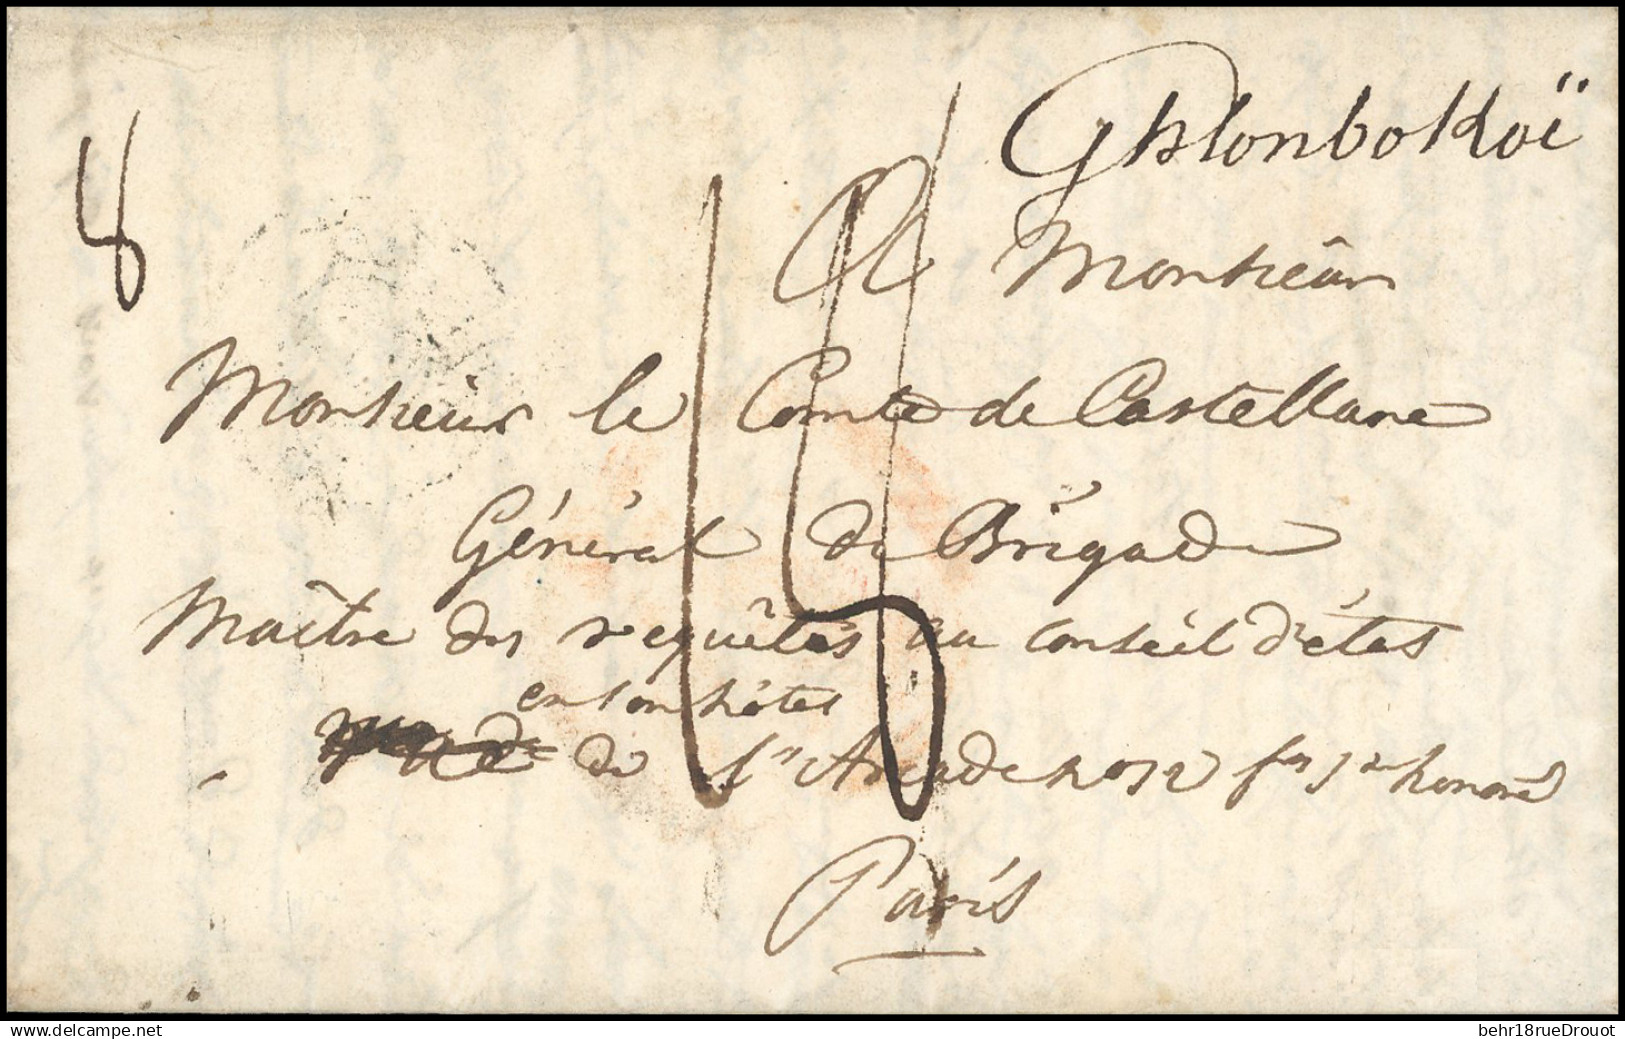 Ghlonbokoï
A Monsieur
Monsieur le Comte de Castellane
Général de Brigade
Maître des requêtes au Conseil d'état
en son hôtel
de l'Arcade no 12 fg St honoré
Paris
www.delcampe.net
behr18rueDrouot